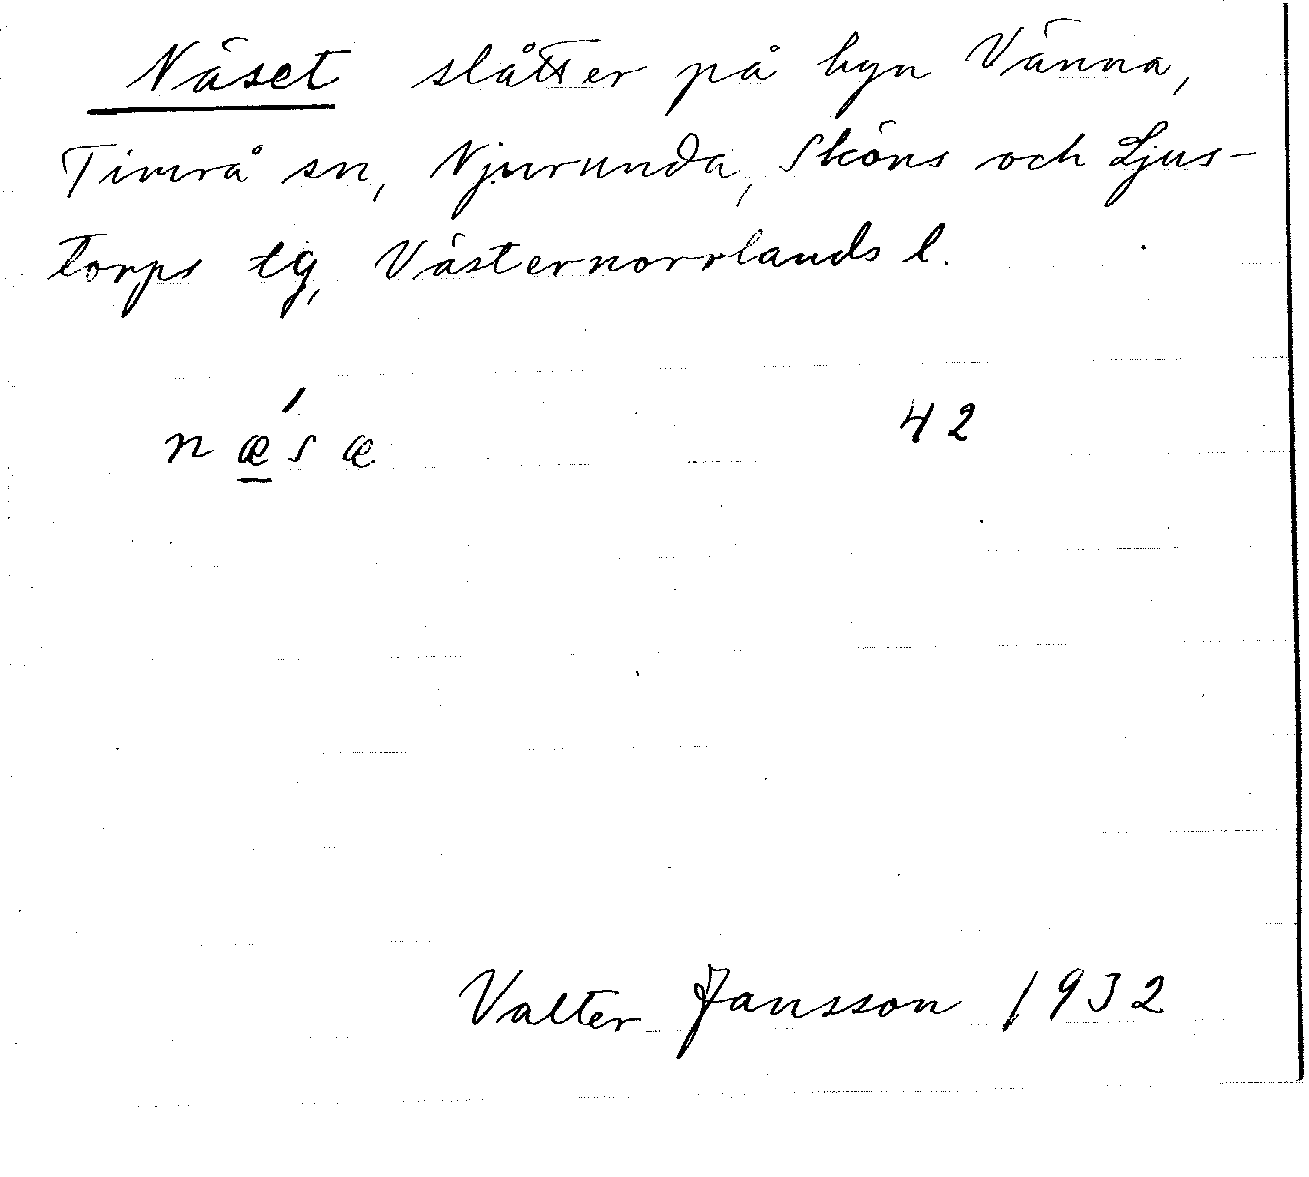 Näset slåtter på byn Vänna,
Timrå sn, Njurunda, Sköns och Ljus-
torps tg, Västernorrlands l.
nǽ̲sæ 42
Valter Jansson 1932